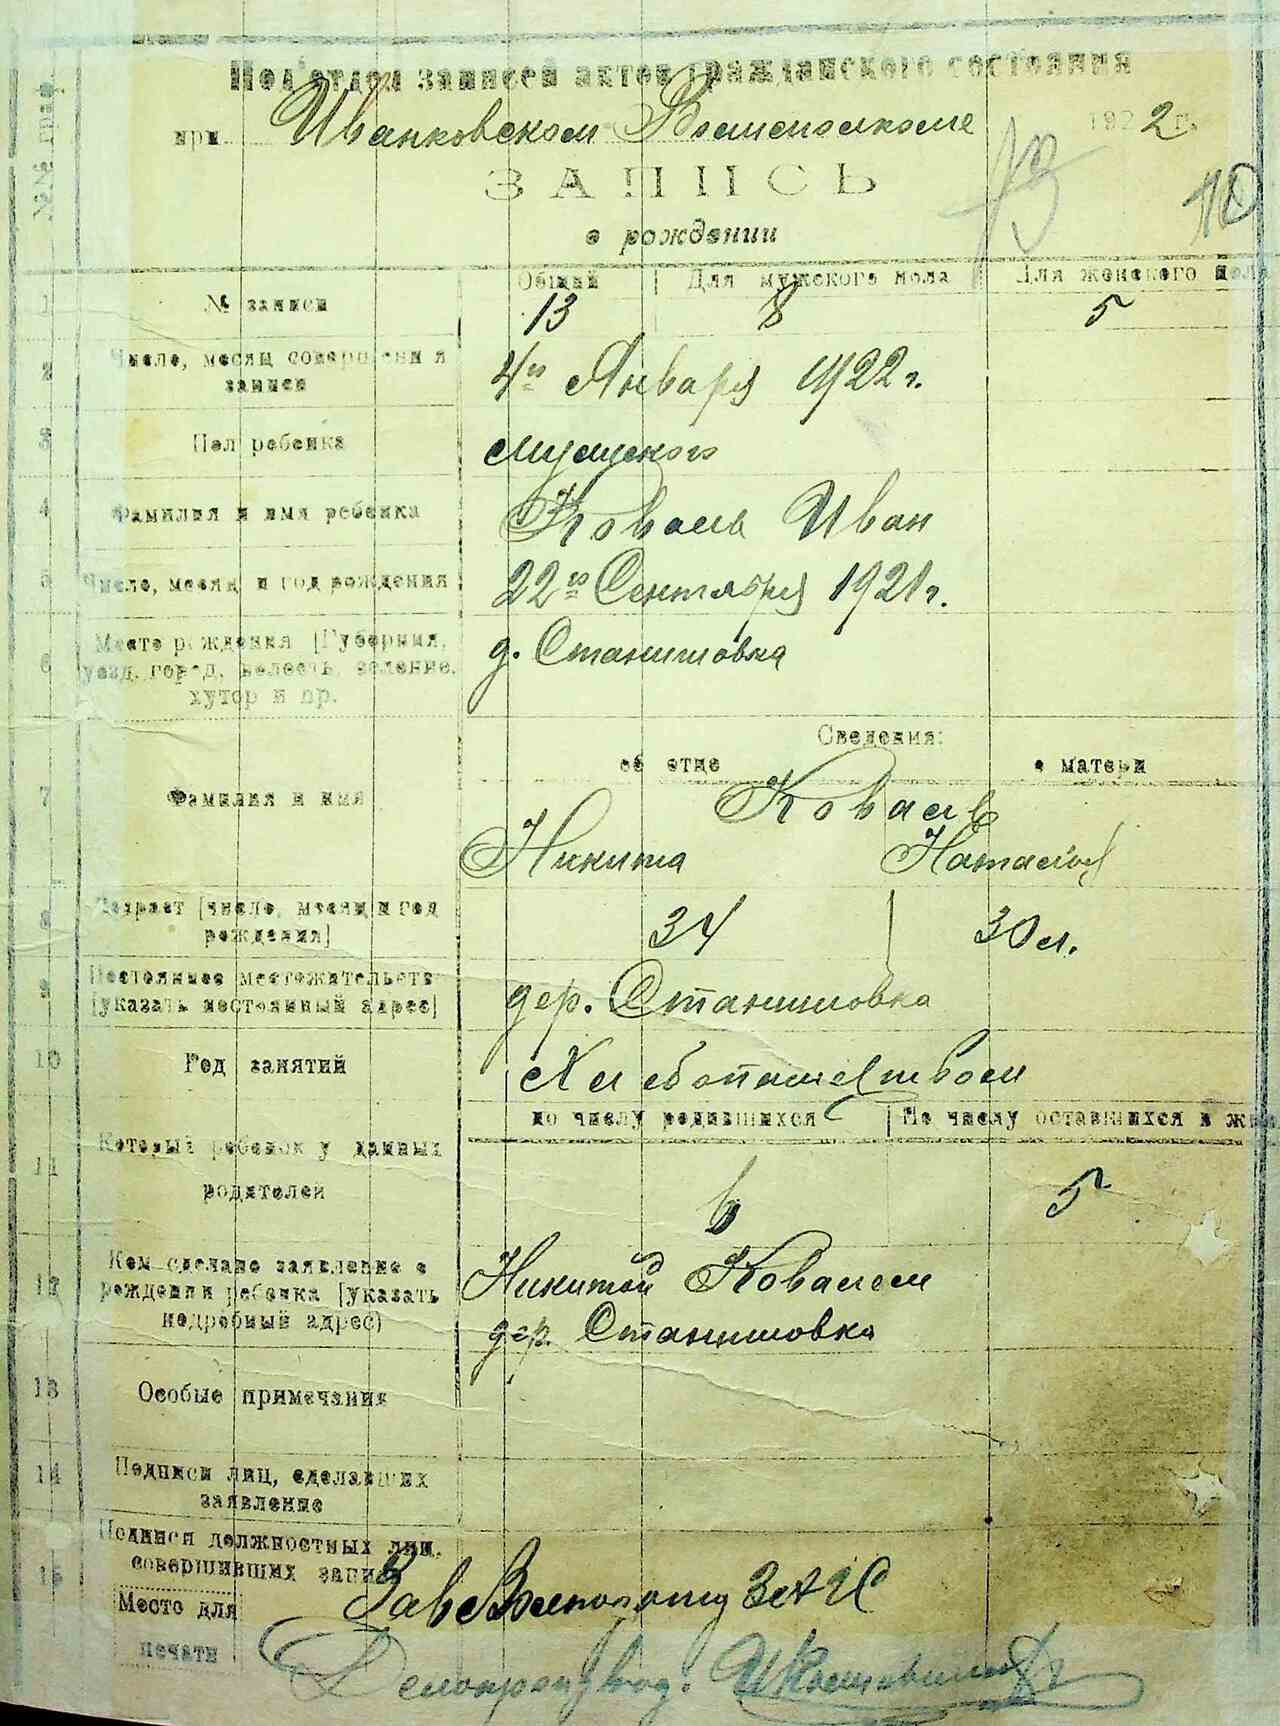 №№ граф
Под'отдел записей актов гражданского состояния
при Иванковском Волисполкоме 1922 г.
ЗАПИСЬ
о рождении
13
110
Общий | Для мужского пола | Для женского пола
1 № записи 13 8 5
2 Число, месяц совершения записи 4го Января 1922 г.
3 Пол ребенка мужского
4 Фамилия и имя ребенка Коваль Иван
5 Число, месяц и год рождения 22го Сентября 1921 г.
6 Место рождения [Губерния, уезд, город, волость, селение, хутор и пр. д. Станишовка
Сведения:
об отце о матери
7 Фамилия и имя Коваль
Никита Наталья
8 Возраст [число, месяц и год рождения] 34 30 л.
9 Постоянное местожительств [указать постоянный адрес] дер. Станишовка
10 Род занятий Хлебопашеством
по числу родившихся | По числу оставшихся в жив
11 Который ребенок у данных родителей 6 5
12 Кем сделано заявление о рождении ребенка [указать подробный адрес) Никитой Ковалем
дер. Станишовка
13 Особые примечания
14 Подписи лиц, сделавших заявление
15 Подписи должностных лиц, совершивших запись
Зав ЗАГС
Место для
печати
Делопроизвод.